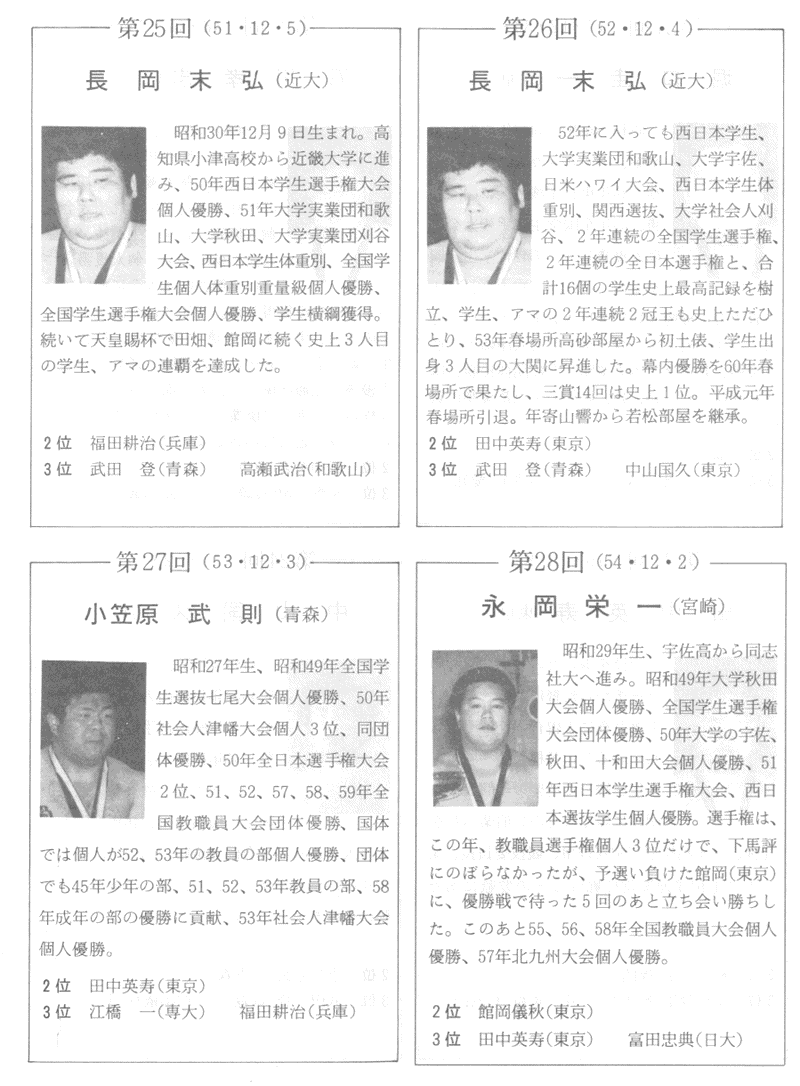 第25回（51・12・5）
長岡末弘（近大）
昭和30年12月9日生まれ。高
知県小津高校から近畿大学に進
み、50年西日本学生選手権大会
個人優勝、51年大学実業団和歌
山、大学秋田、大学実業団刈谷
大会、西日本学生体重別、全国学
生個人体重別重量級個人優勝、
全国学生選手権大会個人優勝、学生横綱獲得。
続いて天皇賜杯で田畑、館岡に続く史上3人目
の学生、アマの連覇を達成した。
2位　福田耕治（兵庫）
3位　武田　登（青森）　高瀬武治（和歌山）
第26回（52・12・4）
長岡末弘（近大）
52年に入っても西日本学生、
大学実業団和歌山、大学宇佐、
日米ハワイ大会、西日本学生体
重別、関西選抜、大学社会人刈
谷、2年連続の全国学生選手権、
2年連続の全日本選手権と、合
計16個の学生史上最高記録を樹
立、学生、アマの2年連続2冠王も史上ただひ
とり、53年春場所高砂部屋から初土俵、学生出
身3人目の大関に昇進した。幕内優勝を60年春
場所で果たし、三賞14回は史上1位。平成元年
春場所引退。年寄山響から若松部屋を継承。
2位　田中英寿（東京）
3位　武田　登（青森）　中山国久（東京）
第27回（53・12・3）
小笠原武則（青森）
昭和27年生、昭和49年全国学
生選抜七尾大会個人優勝、50年
社会人津幡大会個人3位、同団
体優勝、50年全日本選手権大会
2位、51、52、57、58、59年全
国教職員大会団体優勝、国体
では個人が52、53年の教員の部個人優勝、団体
でも45年少年の部、51、52、53年教員の部、58
年成年の部の優勝に貢献、53年社会人津幡大会
個人優勝。
2位　田中英寿（東京）
3位　江橋　一（専大）　福田耕治（兵庫）
第28回（54・12・2）
永岡栄一（宮崎）
昭和29年生、宇佐高から同志
社大へ進み。昭和49年大学秋田
大会個人優勝、全国学生選手権
大会団体優勝、50年大学の宇佐、
秋田、十和田大会個人優勝、51
年西日本学生選手権大会、西日
本選抜学生個人優勝。選手権は、
この年、教職員選手権個人3位だけで、下馬評
にのぼらなかったが、予選い負けた館岡（東京）
に、優勝戦で待った5回のあと立ち会い勝ちし
た。このあと55、56、58年全国教職員大会個人
優勝、57年北九州大会個人優勝。
2位　館岡儀秋（東京）
3位　田中英寿（東京）　富田忠典（日大）